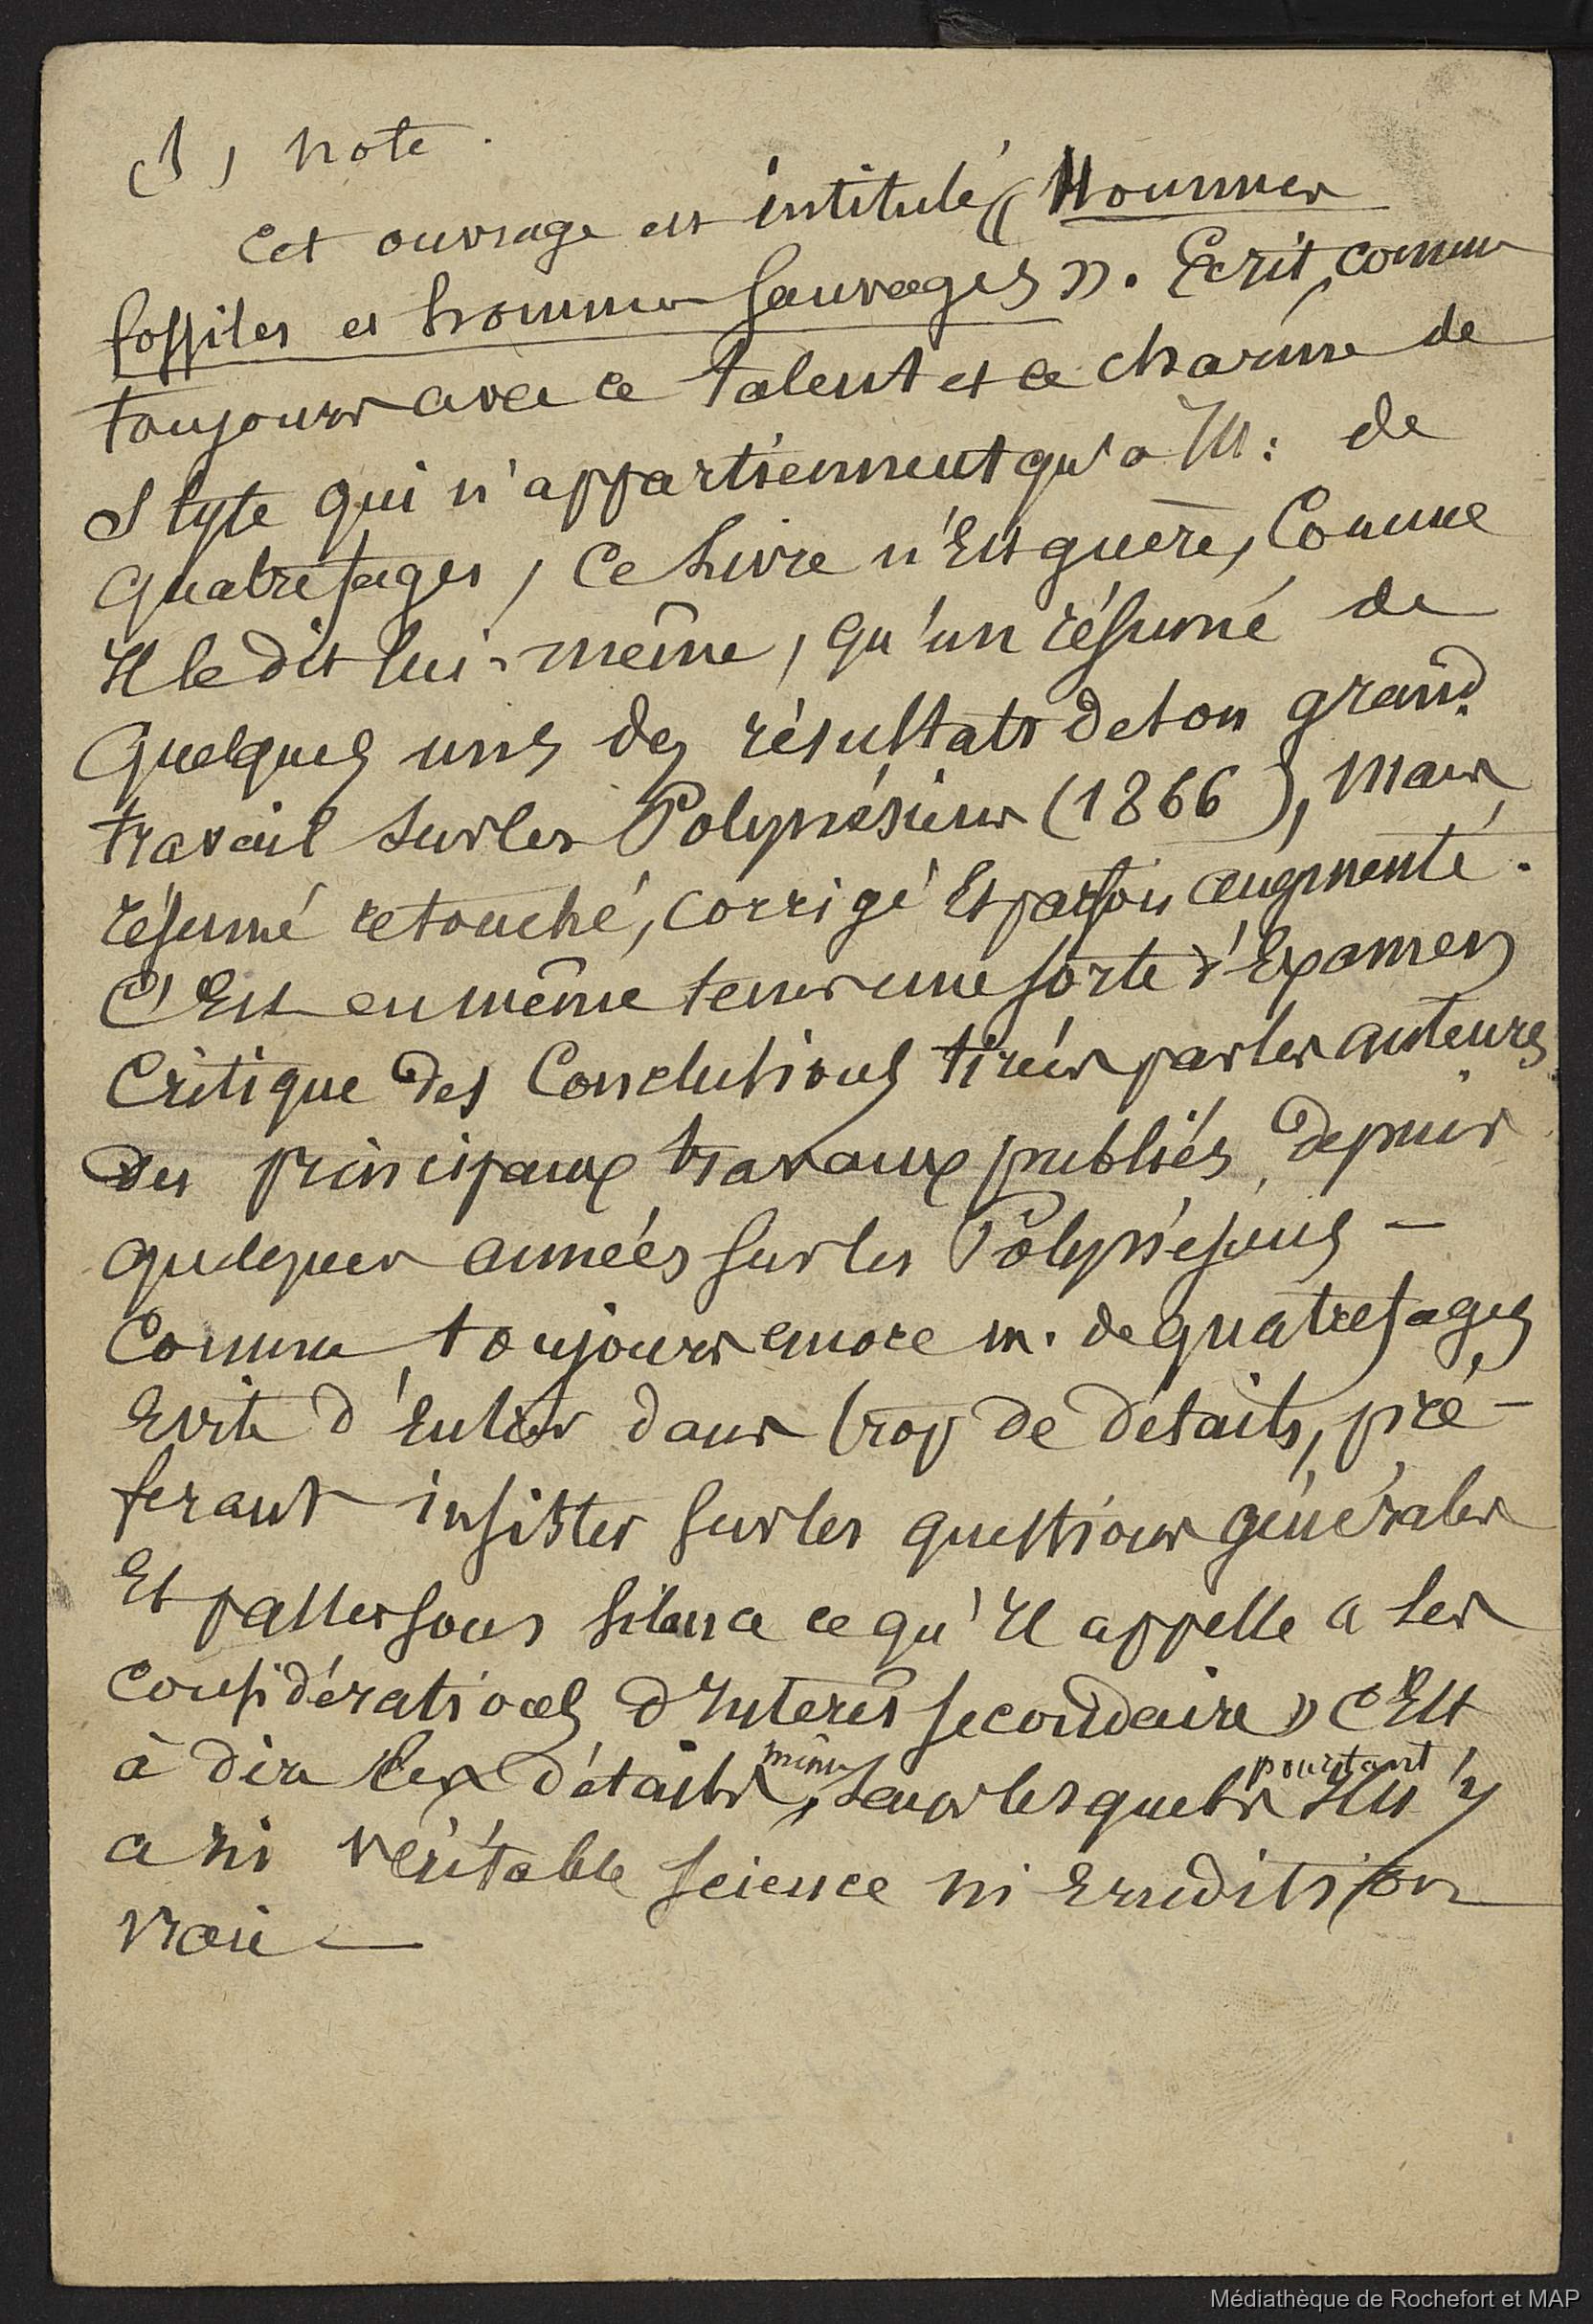 (1) note.
Cet ouvrage est intitulé « Hommes
fossiles et hommes sauvages ». Ecrit, comme
toujours avec ce talent et ce charme de
Style qui n'appartiennent qu'à M. de
quatrefages, ce livre n'est guère, comme
Il le dit lui-même, qu'un résumé de
quelques uns des résultats de son grand
travail sur les Polynésiens (1866), mais,
résumé retouché, corrigé Et parfois augmenté.
C'Est en même tems une sorte d'Examen
Critique des Conclusions tirées par les auteurs
des principaux travaux publiés, depuis
quelques années sur les Polynésiens —
Comme toujours encore m. de quatrefages
Evite d'Entrer dans trop de détails, pré-
ferant insister sur les questions générales
Et passer sous silence ce qu'Il appelle « les
Considérations d'Interêt secondaire » c'Est
à dire les détails même, sans lesquels pourtant Il n'y
a ni véritable science ni Erudition
vraie —
Médiathèque de Rochefort et MAP